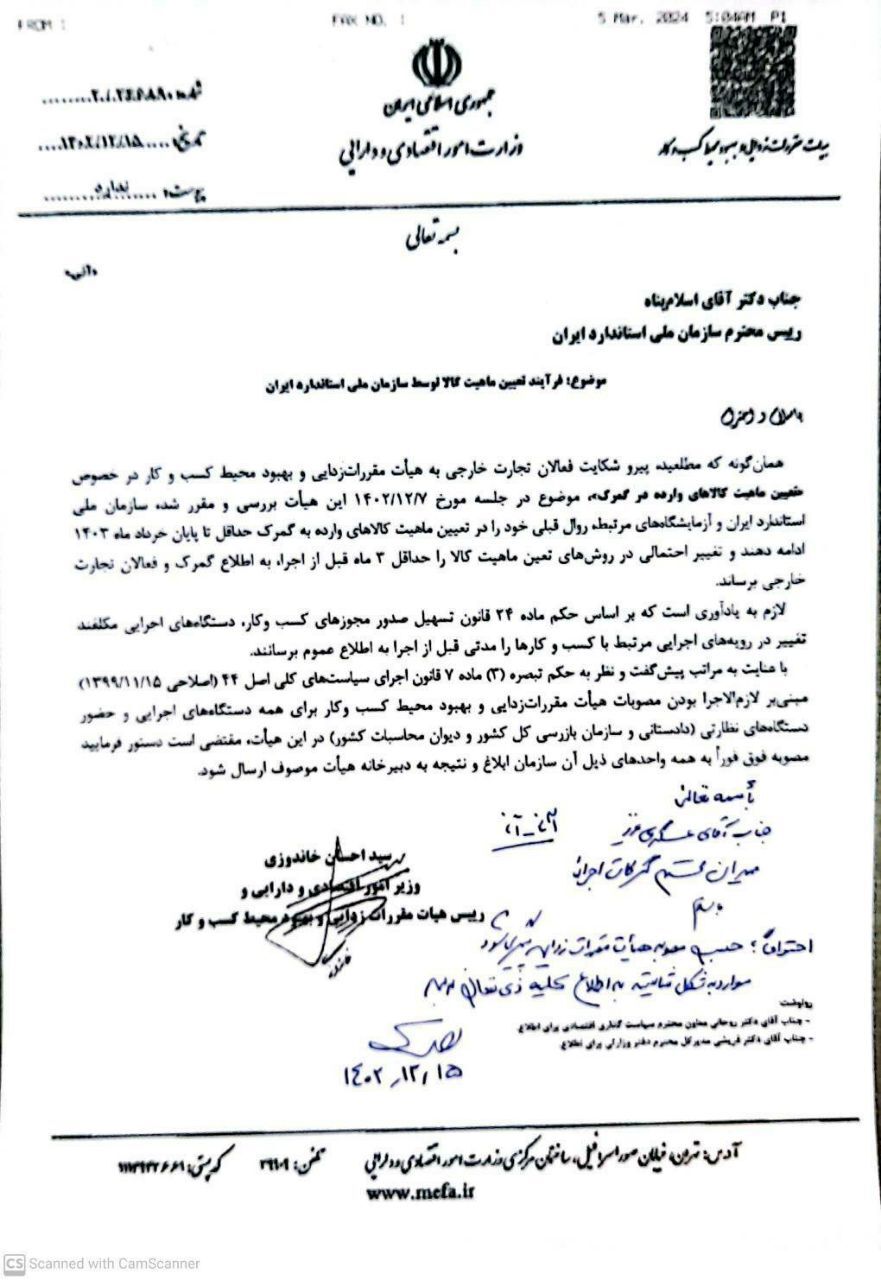 FROM :
FAX NO. :
5 Mar. 2024 5:04AM P1
جمهوری اسلامی ایران
وزارت امور اقتصادی و دارایی
هیات مقررات زدایی و بهبود محیط کسب و کار
شماره
تاریخ: ۱۴۰۲/۱۲/۱۵
پیوست: ندارد
بسمه تعالی
«آنی»
جناب دکتر آقای اسلام‌پناه
رییس محترم سازمان ملی استاندارد ایران
موضوع: فرآیند تعیین ماهیت کالا توسط سازمان ملی استاندارد ایران
با سلام و احترام
همان‌گونه که مطلعید، پیرو شکایت فعالان تجارت خارجی به هیأت مقررات‌زدایی و بهبود محیط کسب و کار در خصوص
«تعیین ماهیت کالاهای وارده در گمرک»، موضوع در جلسه مورخ ۱۴۰۲/۱۲/۷ این هیأت بررسی و مقرر شد، سازمان ملی
استاندارد ایران و آزمایشگاه‌های مرتبط، روال قبلی خود را در تعیین ماهیت کالاهای وارده به گمرک حداقل تا پایان خرداد ماه ۱۴۰۳
ادامه دهند و تغییر احتمالی در روش‌های تعین ماهیت کالا را حداقل ۳ ماه قبل از اجرا، به اطلاع گمرک و فعالان تجارت
خارجی برساند.
لازم به یادآوری است که بر اساس حکم ماده ۲۴ قانون تسهیل صدور مجوزهای کسب وکار، دستگاه‌های اجرایی مکلفند
تغییر در رویه‌های اجرایی مرتبط با کسب و کارها را مدتی قبل از اجرا به اطلاع عموم برسانند.
با عنایت به مراتب پیش‌گفت و نظر به حکم تبصره (۳) ماده ۷ قانون اجرای سیاست‌های کلی اصل ۴۴ (اصلاحی ۱۳۹۹/۱۱/۱۵)
مبنی‌بر لازم‌الاجرا بودن مصوبات هیأت مقررات‌زدایی و بهبود محیط کسب وکار برای همه دستگاه‌های اجرایی و حضور
دستگاه‌های نظارتی (دادستانی و سازمان بازرسی کل کشور و دیوان محاسبات کشور) در این هیأت، مقتضی است دستور فرمایید
مصوبه فوق فوراً به همه واحدهای ذیل آن سازمان ابلاغ و نتیجه به دبیرخانه هیأت موصوف ارسال شود.
سید احسان خاندوزی
وزیر امور اقتصادی و دارایی و
رییس هیات مقررات زدایی و بهبود محیط کسب و کار
باسمه تعالی
جناب آقای عسگری عزیز
احتراماً؛ حسب مصوبه هیأت مقررات زدایی
به اطلاع کلیه ذی نفعان
۱۴۰۲/۱۲/۱۵
رونوشت
- جناب آقای دکتر روحانی معاون محترم سیاست گذاری اقتصادی برای اطلاع
- جناب آقای دکتر قریشی مدیرکل محترم دفتر وزارتی برای اطلاع
آدرس: تهران، خیابان صور اسرافیل، ساختمان مرکزی وزارت امور اقتصادی و دارایی تلفن: ۳۹۹۰۹ کد پستی:
www.mefa.ir
CS Scanned with CamScanner